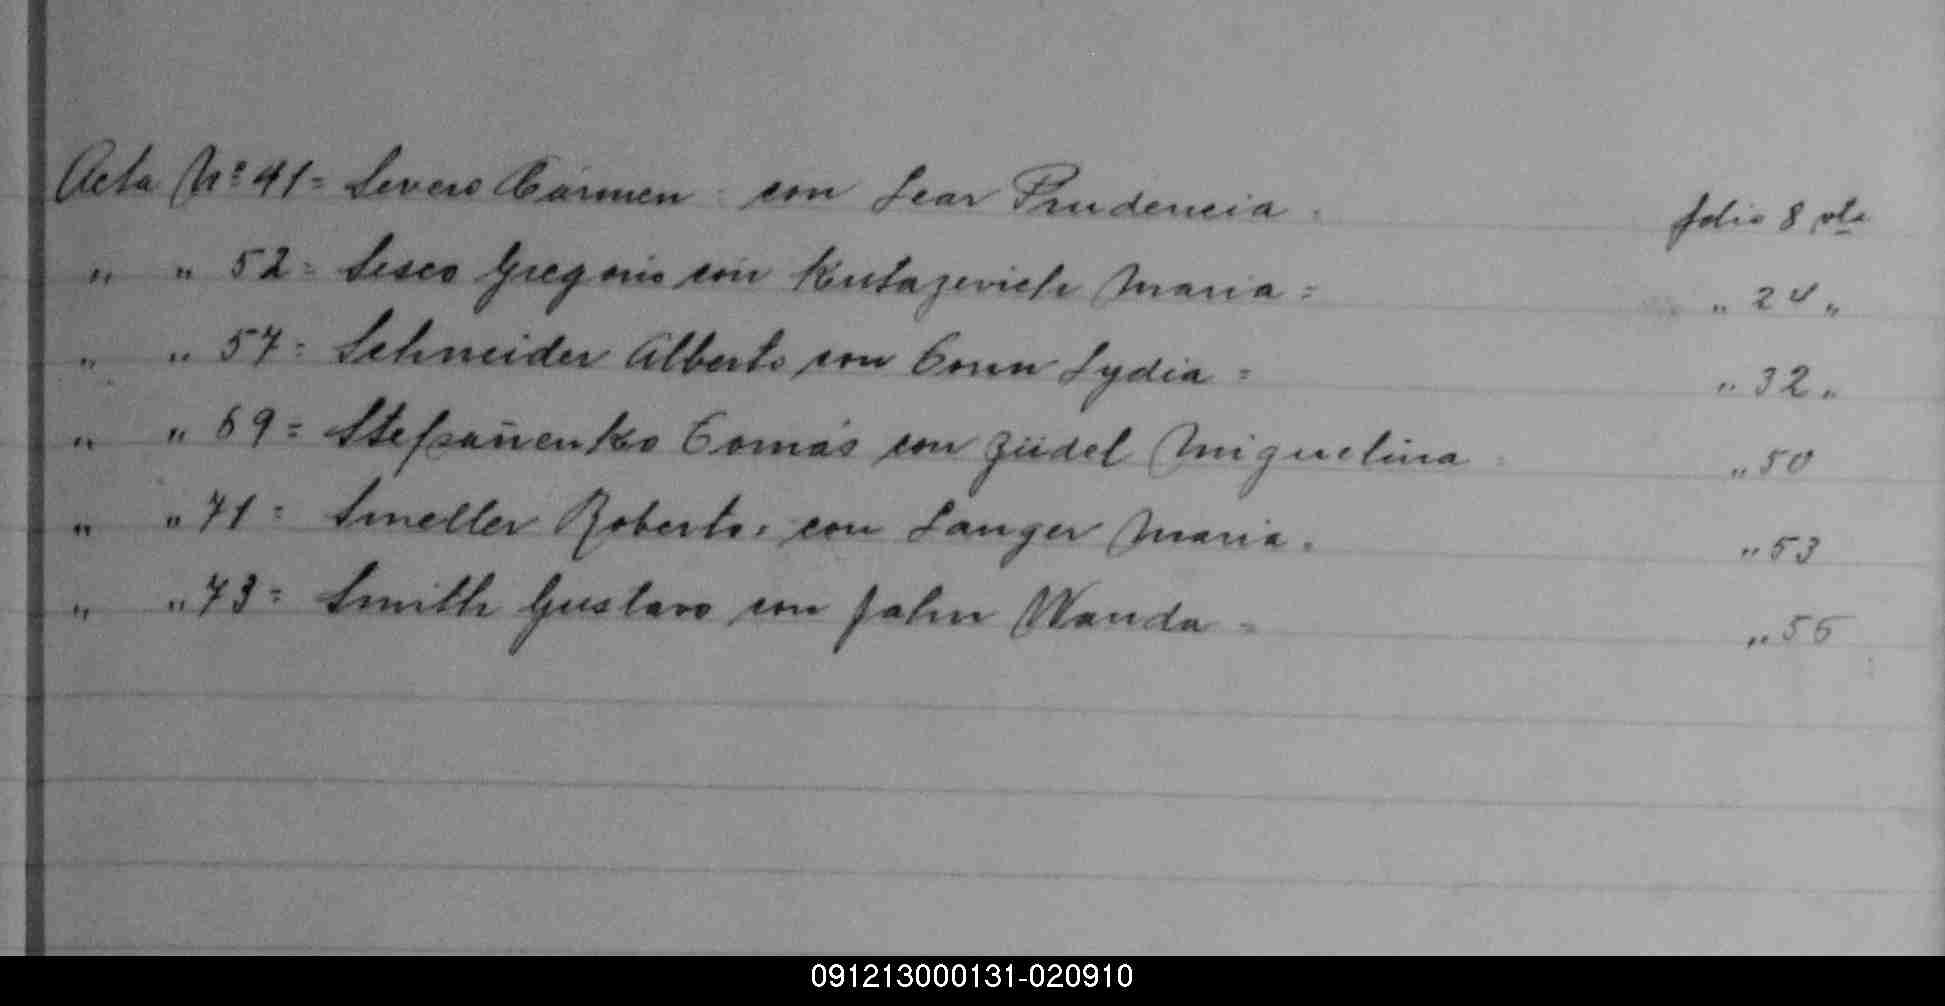 Acta Nº 41= Severo Cármen = con Lear Prudencia = folio 8 vta
" " 52= Sesco Gregorio con Kutazevich Maria = " 24 "
" " 57= Schneider Alberto con Conn Lydia = " 32 "
" " 69= Stefsañenko Tomás con Züdel Miguelina = " 50
" " 71= Smeller Roberto, con Langer Maria. " 53
" " 73= Smith Gustavo con Jahn Wanda = " 55
091213000131-020910